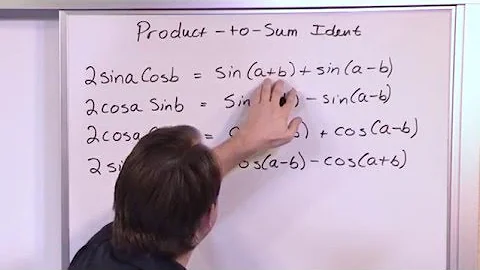 Product-to-Sum Ident
2sina Cosb = sin(a+b) + sin(a-b)
2cosa Sinb = Sin - sin(a-b)
2cosa = + cos(a-b)
2 cos(a-b) - cos(a+b)